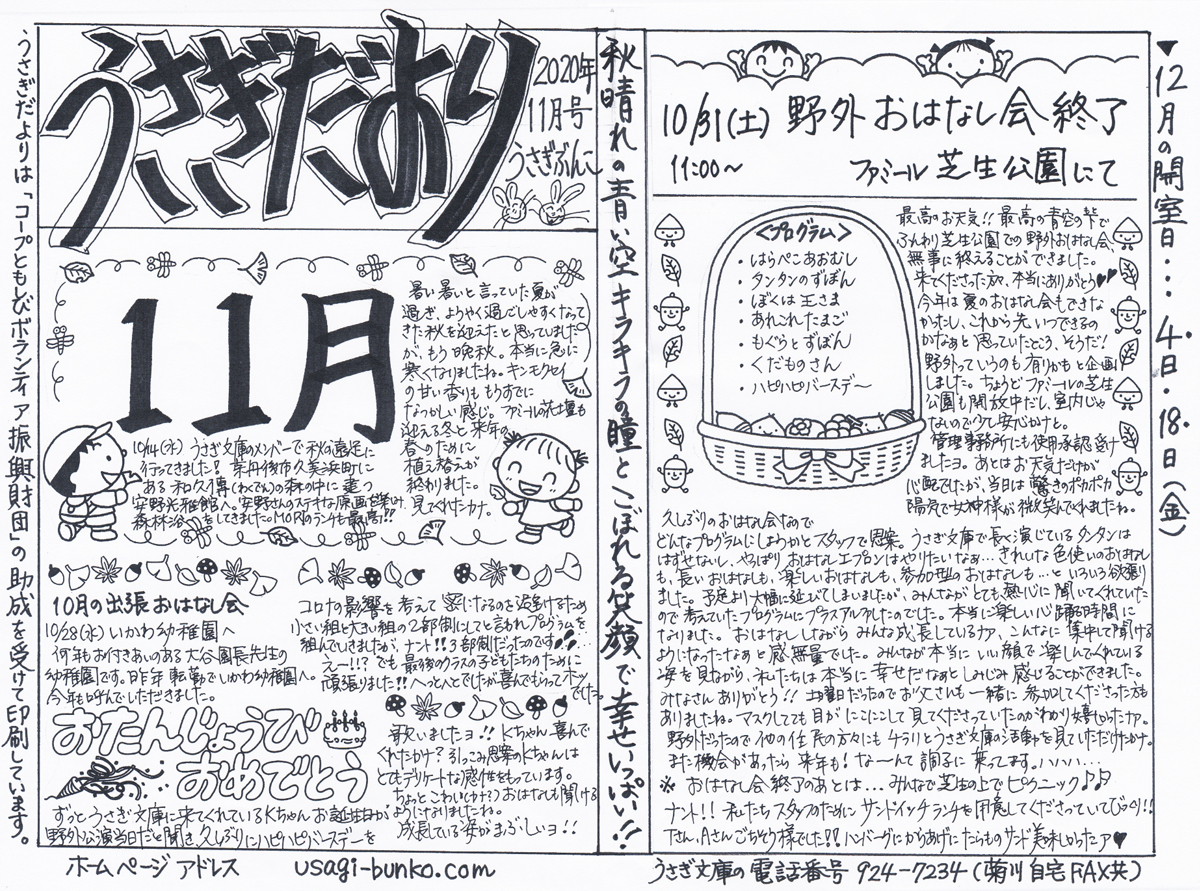 うさぎだより
2020年
11月号
うさぎぶんこ
うさぎだよりは「コープともしびボランティア振興財団」の助成を受けて印刷しています。
11月
暑い暑いと言っていた夏が
過ぎ、ようやく過ごしやすくなって
きた秋を迎えたと思っていました
が、もう晩秋。本当に急に
寒くなりましたね。キンモクセイ
の甘い香りももうすでに
なつかしい感じ。ファミールの花壇も
迎える冬と来年の
春へのために
植え替えが
終わりました。
見てくれたカナ。
10/14(水)うさぎ文庫のメンバーで秋の遠足に
行ってきました!京丹後市久美浜町に
ある和久傳(わくでん)の森の中に建つ
安野光雅館へ。安野さんのステキな原画を楽しみ
森林浴をしてきました。MORIのランチも最高!!
10月の出張おはなし会
10/28(水)いかわ幼稚園へ
何年もお付きあいのある大谷園長先生の
幼稚園です。昨年転勤でいかわ幼稚園へ。
今年も呼んでいただきました。
コロナの影響を考えて密になるのを避けるため
小さい組と大きい組の2部制にしてと言われプログラムを
組んでいきましたが、ナント!!3部制だったのです!!
え〜!!?でも最後のクラスの子どもたちのために
頑張りました!!へっとへとでしたが喜んでもらってホッ
でした。
おたんじょうび
おめでとう
ずっとうさぎ文庫に来てくれているKちゃんお誕生日が
野外公演当日だと聞き、久しぶりにハピハピバースデーを
歌いましたヨ!!Kちゃん喜んで
くれたカナ?引っこみ思案のKちゃんは
とてもデリケートな感性をもっています。
ちょっとこわい(かナ?)おはなしも聞ける
ようになりましたね。
成長している姿がまぶしいヨ!!
ホームページアドレス usagi-bunko.com
秋晴れの青い空キラキラの瞳とこぼれる笑顔で幸せいっぱい!!
10/31(土)野外おはなし会終了
11:00〜 ファミール芝生公園にて
<プログラム>
・はらぺこあおむし
・タンタンのずぼん
・ぼくは王さま
・あれこれたまご
・もぐらとずぼん
・くだものさん
・ハピハピバースデー
最高のお天気!!最高の青空の下で
ふんわり芝生公園での野外おはなし会、
無事に終えることができました。
来てくださった方、本当にありがとう♥♥
今年は夏のおはなし会もできな
かったし、これから先いつできるの
かなぁと思っていたところ、そうだ!
野外っていうのも有りかもと企画
しました。ちょうどファミールの芝生
公園も開放中だし、室内じゃ
ないので少し安心かナと。
管理事務所にも使用承認受け
ましたヨ。あとはお天気だけが
心配でしたが、当日は驚きのポカポカ
陽気で女神様が微笑んでくれましたね。
久しぶりのおはなし会なので
どんなプログラムにしようかとスタッフで思案。うさぎ文庫で長く演じているタンタンは
はずせないし、やっぱりおはなしエプロンはやりたいなぁ…きれいな色使いのおはなし
も、長いおはなしも、楽しいおはなしも、参加型のおはなしも…といろいろ欲張り
ました。予定より大幅に延びてしまいましたが、みんながとても熱心に聞いてくれていた
ので考えていたプログラムにプラスアルファしたのでした。本当に楽しい心踊る時間に
なりました。おはなししながらみんな成長しているナァ、こんなに集中して聞ける
ようになったなぁと感無量でした。みんなが本当にいい顔で楽しんでくれている
姿を見ながら、私たちは本当に幸せだなぁとしみじみ感じることができました。
みなさんありがとう!!土曜日だったのでお父さんも一緒に参加してくださった方も
ありましたね。マスクしてても目がにこにこして見てくださっていたのがわかり嬉しかったナァ。
野外だったので他の住民の方々にもチラリとうさぎ文庫の活動を見ていただけたカナ。
また機会があったら来年も!な〜んて調子に乗ってます。ハハハ…
※おはなし会終了のあとは…みんなで芝生の上でピクニック♪♪
ナント!!私たちスタッフのためにサンドイッチランチを用意してくださっていてびっくり!!
Tさん、Aさんごちそう様でした!!ハンバーグにからあげにたらものサンド美味しかったナァ♥
うさぎ文庫の電話番号 924-7234(菊川自宅FAX共)
▼12月の開室日…4日・18日(金)